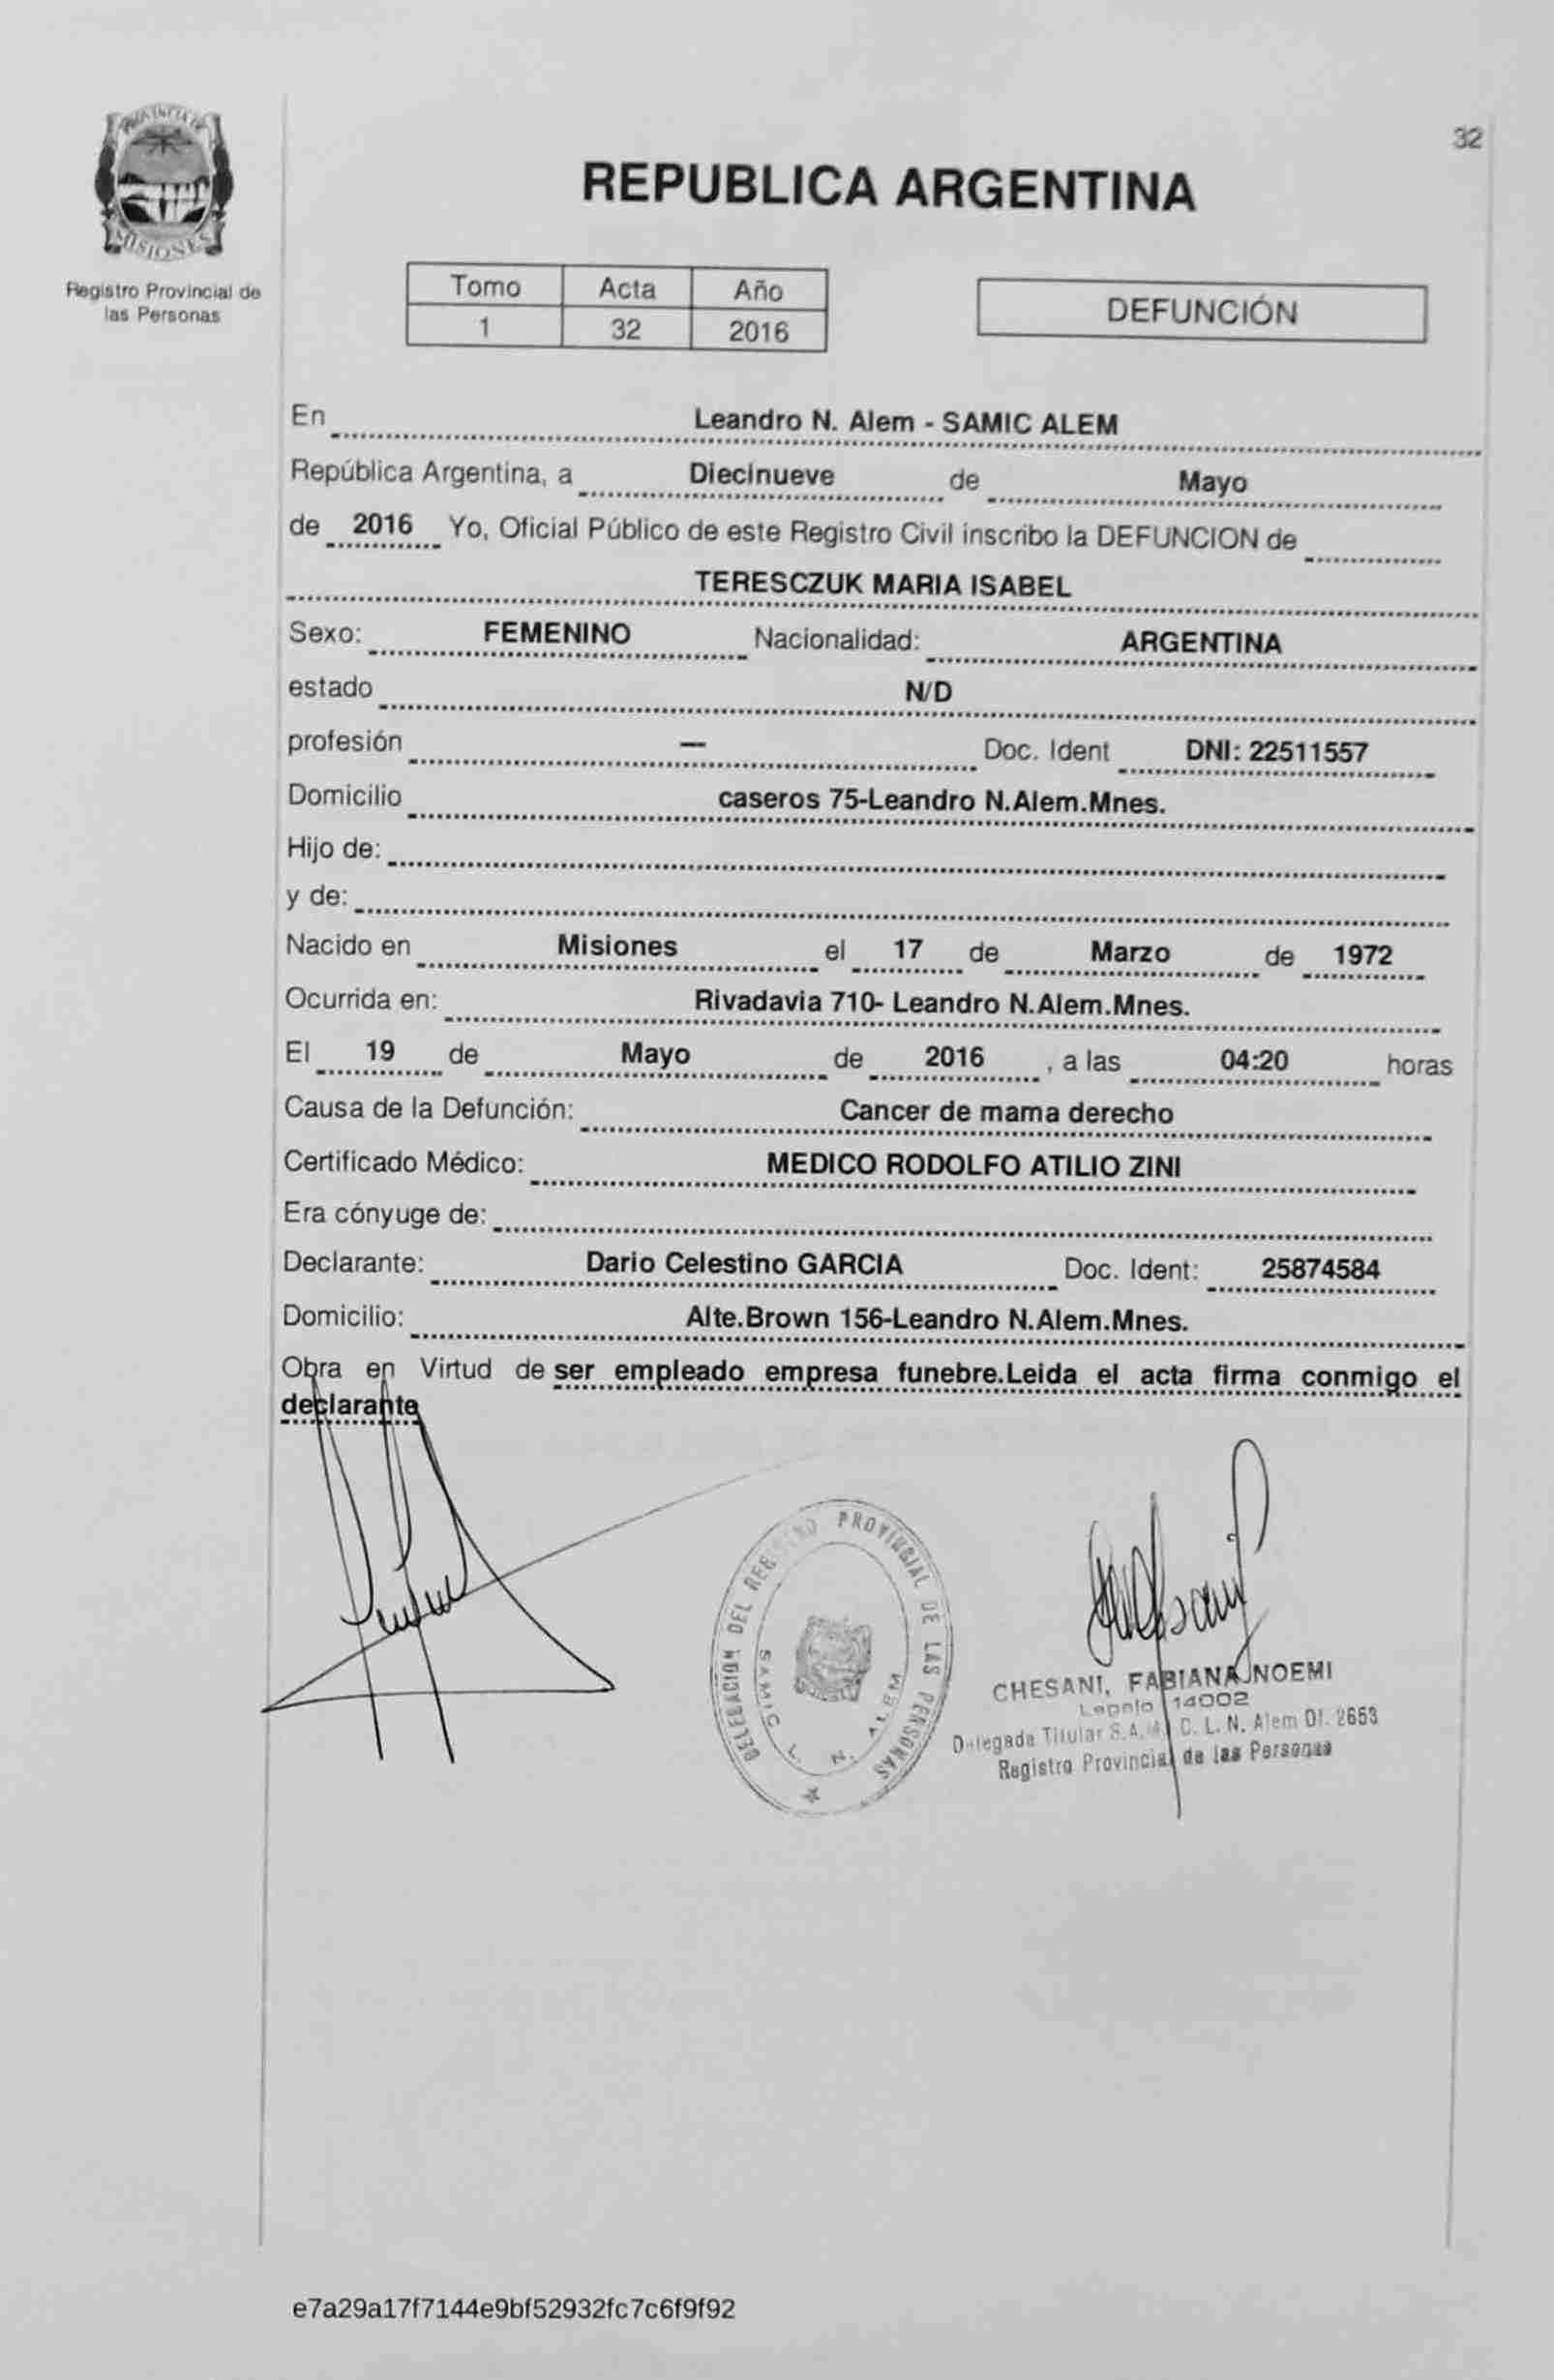 32
PROVINCIA DE
MISIONES
Registro Provincial de
las Personas
REPUBLICA ARGENTINA
Tomo Acta Año
1 32 2016
DEFUNCIÓN
En Leandro N. Alem - SAMIC ALEM
República Argentina, a Diecinueve de Mayo
de 2016 Yo, Oficial Público de este Registro Civil inscribo la DEFUNCION de
TERESCZUK MARIA ISABEL
Sexo: FEMENINO Nacionalidad: ARGENTINA
estado N/D
profesión — Doc. Ident DNI: 22511557
Domicilio caseros 75-Leandro N.Alem.Mnes.
Hijo de:
y de:
Nacido en Misiones el 17 de Marzo de 1972
Ocurrida en: Rivadavia 710- Leandro N.Alem.Mnes.
El 19 de Mayo de 2016 , a las 04:20 horas
Causa de la Defunción: Cancer de mama derecho
Certificado Médico: MEDICO RODOLFO ATILIO ZINI
Era cónyuge de:
Declarante: Dario Celestino GARCIA Doc. Ident: 25874584
Domicilio: Alte.Brown 156-Leandro N.Alem.Mnes.
Obra en Virtud de ser empleado empresa funebre.Leida el acta firma conmigo el
declarante
DELEGACION DEL REGISTRO PROVINCIAL DE LAS PERSONAS
SAMIC L. N. ALEM
CHESANI, FABIANA NOEMI
Legajo 14002
Delegada Titular S.A.M. C. L. N. Alem Of. 2653
Registro Provincial de las Personas
e7a29a17f7144e9bf52932fc7c6f9f92